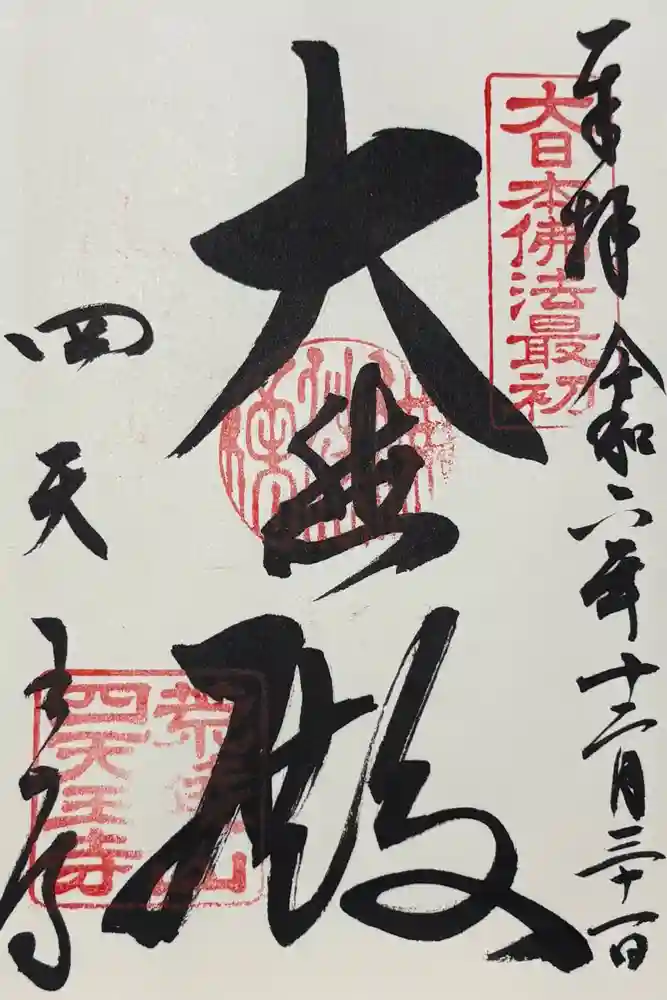 奉拝
令和六年十二月三十一日
大日本佛法最初
大悲殿
四天王寺
荒陵山
四天王寺